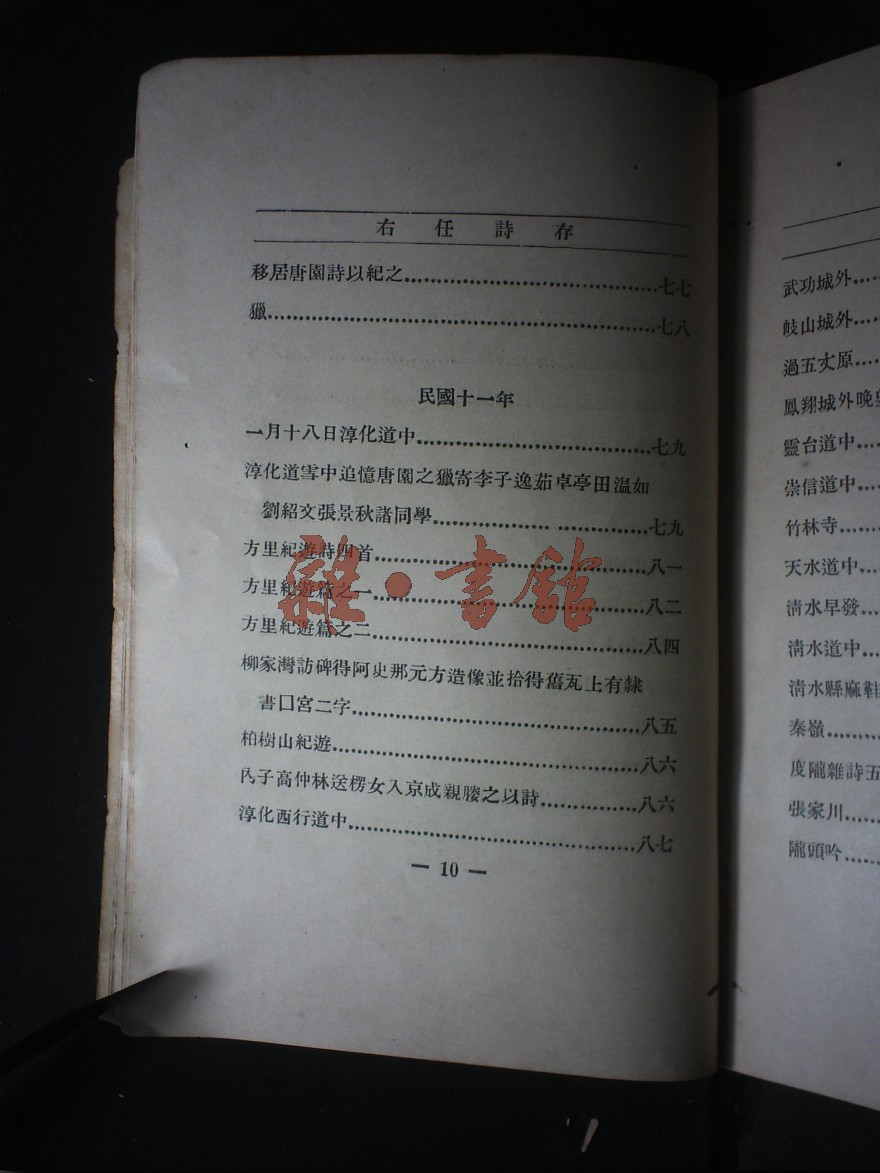 右任詩存
移居唐園詩以紀之……七七
獵……七八
民國十一年
一月十八日淳化道中……七九
淳化道雪中追憶唐園之獵寄李子逸茹卓亭田温如
劉紹文張景秋諸同學……七九
方里紀遊詩四首……八一
方里紀遊篇之一……八二
方里紀遊篇之二……八四
柳家灣訪碑得阿史那元方造像並拾得舊瓦上有隸
書囗宮二字……八五
柏樹山紀遊……八六
內子高仲林送楞女入京成親媵之以詩……八六
淳化西行道中……八七
— 10 —
雜·書館
武功城外……
岐山城外……
過五丈原……
鳳翔城外晚
靈台道中……
崇信道中……
竹林寺……
天水道中……
清水早發
清水道中……
清水縣麻鞋
秦嶺……
度隴雜詩五
張家川……
隴頭吟……